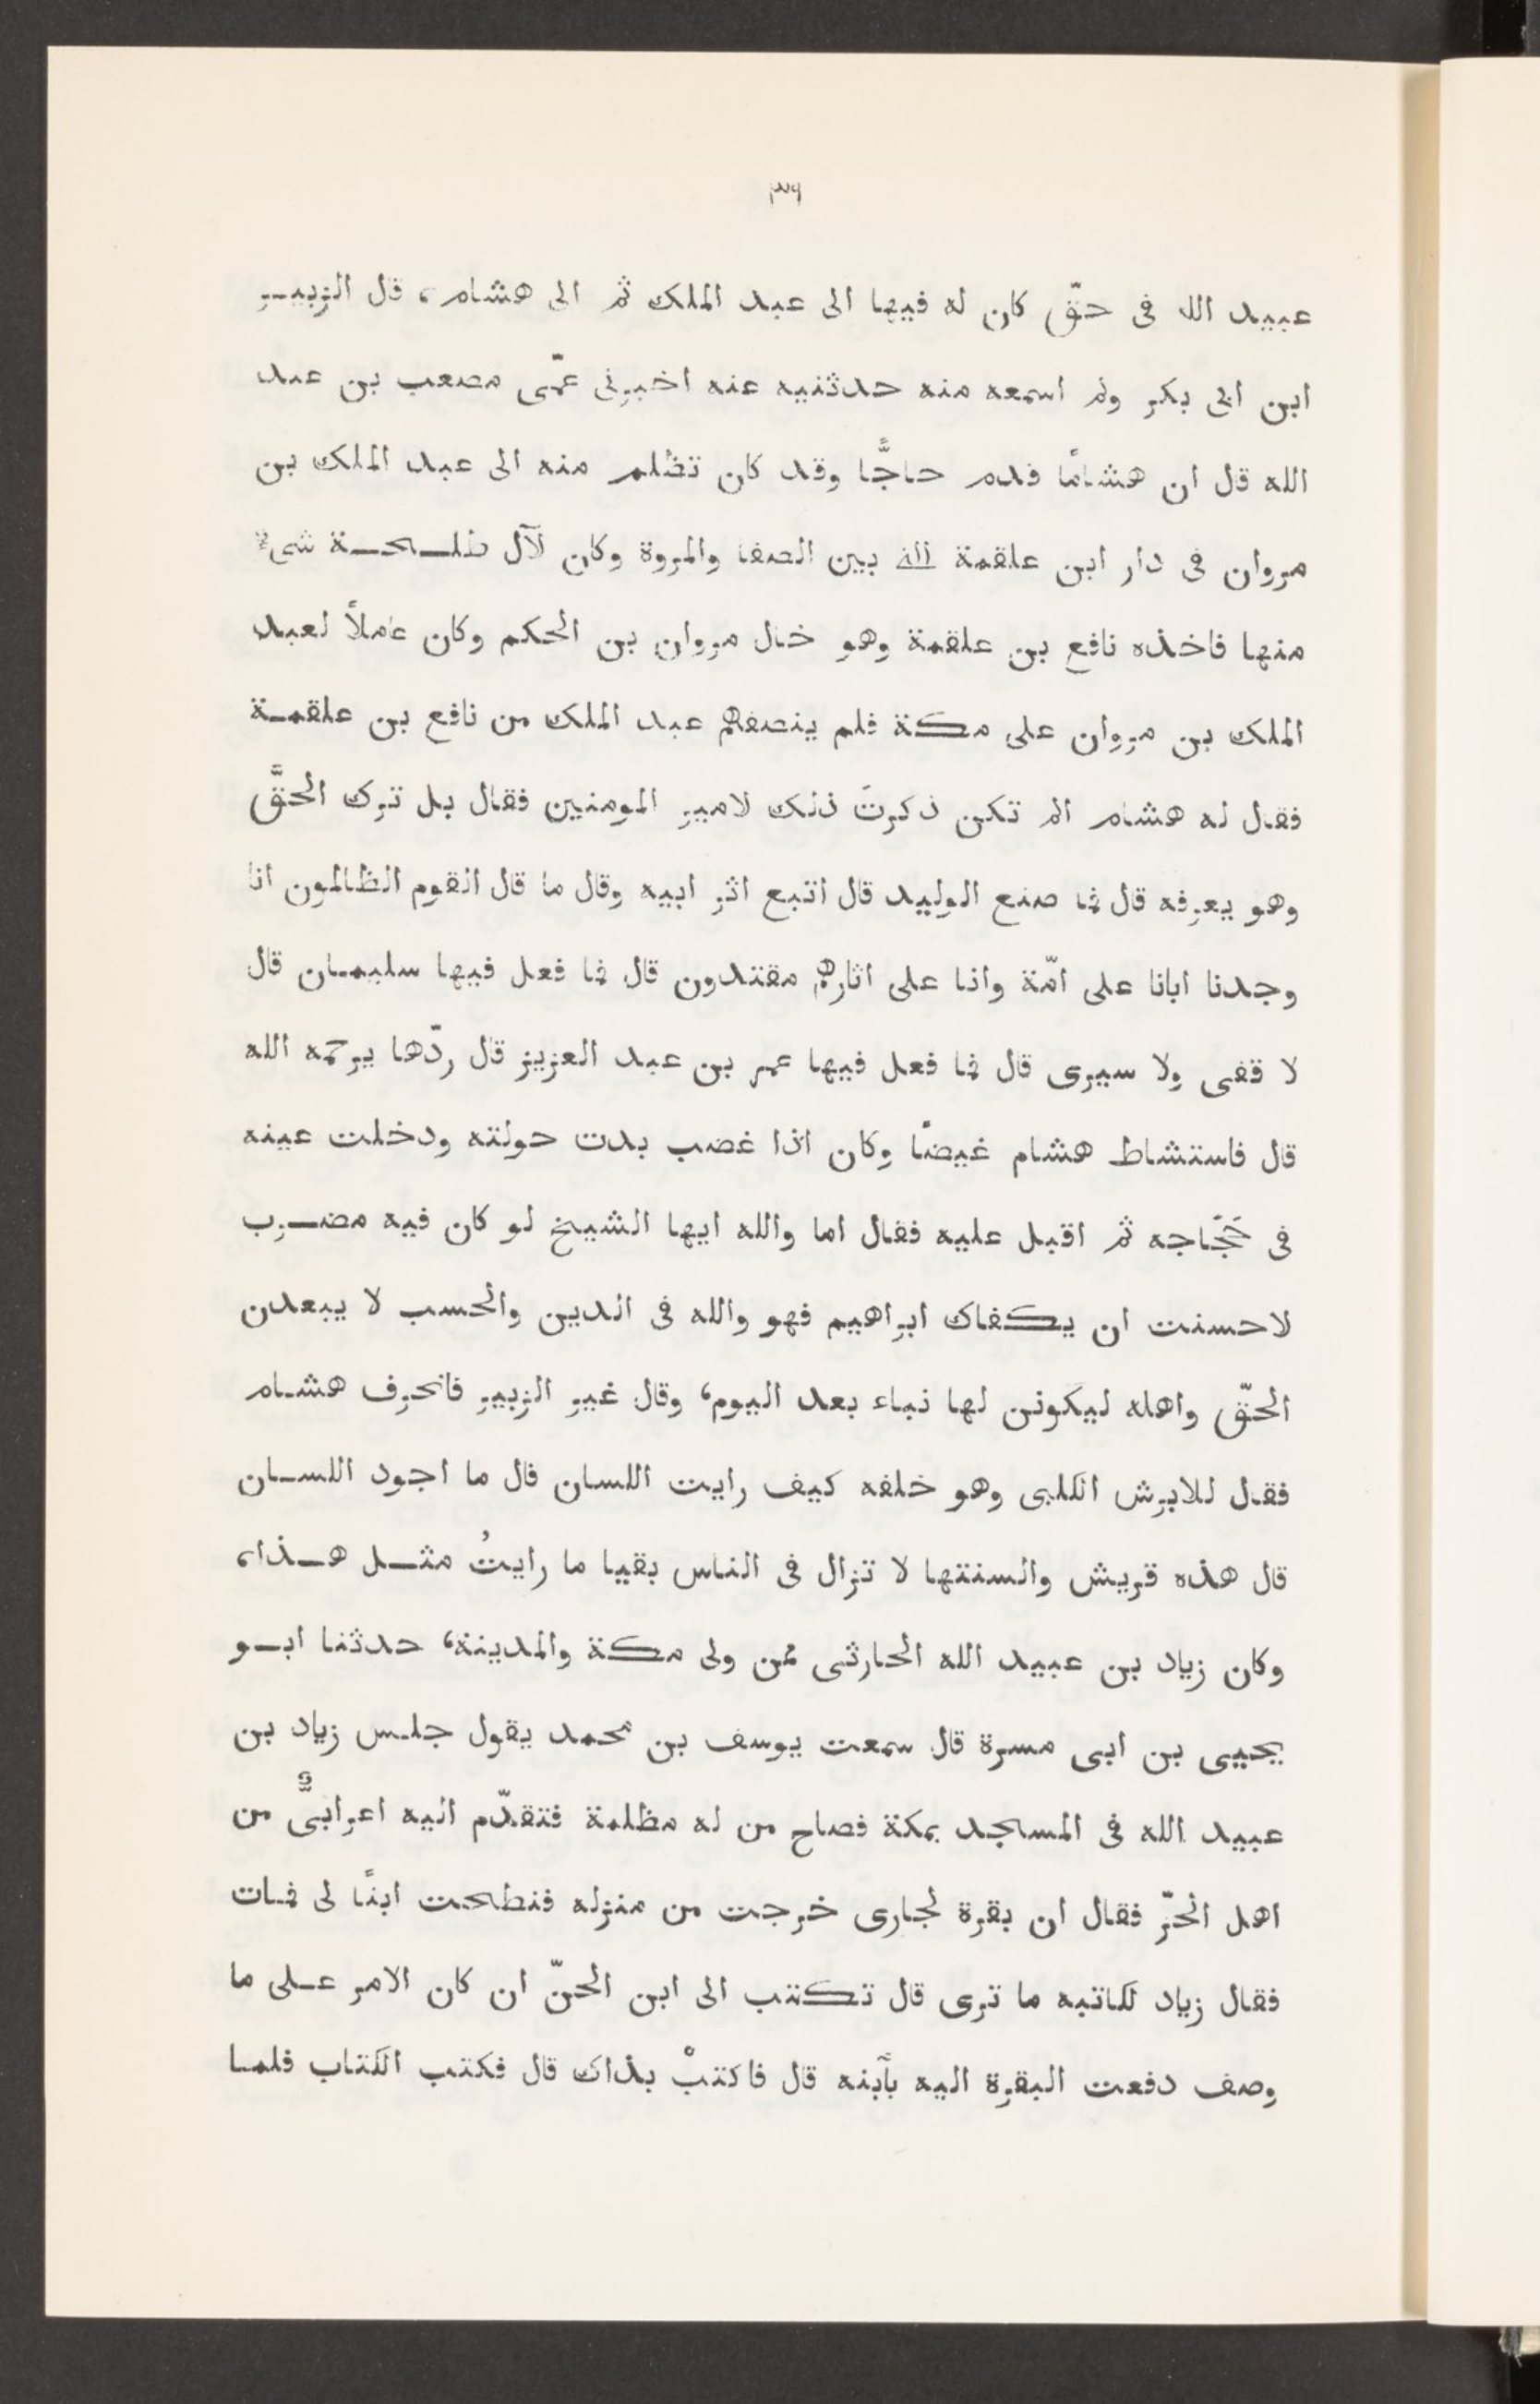 ٣٦
عبيد الله فى حقّ كان له فيها الى عبد الملك ثم الى هشام، قال الزبير
ابن ابى بكر ولم اسمعه منه حدثنيه عنه اخبرنى عمّى مصعب بن عبد
الله قال ان هشامًا قدم حاجًّا وقد كان تظلم منه الى عبد الملك بن
مروان فى دار ابن علقمة الله بين الصفا والمروة وكان لآل طلحة شىء
منها فاخذه نافع بن علقمة وهو خال مروان بن الحكم وكان عاملاً لعبد
الملك بن مروان على مكة فلم ينصفهم عبد الملك من نافع بن علقمة
فقال له هشام الم تكن ذكرتَ ذلك لامير المومنين فقال بل ترك الحقَّ
وهو يعرفه قال فما صنع الوليد قال اتبع اثر ابيه وقال ما قال القوم الظالمون انا
وجدنا ابانا على امّة وانا على اثارهم مقتدون قال فما فعل فيها سليمان قال
لا قفى ولا سيرى قال فما فعل فيها عمر بن عبد العزيز قال ردّها يرحمه الله
قال فاستشاط هشام غيضًا وكان اذا غضب بدت حولته ودخلت عينه
فى حَجَاجه ثم اقبل عليه فقال اما والله ايها الشيخ لو كان فيه مضرب
لاحسنت ان يكفاك ابراهيم فهو والله فى الدين والحسب لا يبعدن
الحقّ واهله ليكونن لها نباء بعد اليوم، وقال غير الزبير فانحرف هشام
فقال للابرش الكلبى وهو خلفه كيف رايت اللسان قال ما اجود اللسان
قال هذه قريش والسنتها لا تزال فى الناس بقيا ما رايتُ مثل هذا،
وكان زياد بن عبيد الله الحارثى ممن ولى مكة والمدينة، حدثنا ابو
يحيى بن ابى مسرة قال سمعت يوسف بن محمد يقول جلس زياد بن
عبيد الله فى المسجد بمكة فصاح من له مظلمة فتقدّم اليه اعرابىٌّ من
اهل الحرّ فقال ان بقرة لجارى خرجت من منزله فنطحت ابنًا لى فمات
فقال زياد لكاتبه ما ترى قال تكتب الى ابن الحرّ ان كان الامر على ما
وصف دفعت البقرة اليه بآبنه قال فاكتبْ بذاك قال فكتب الكتاب فلما